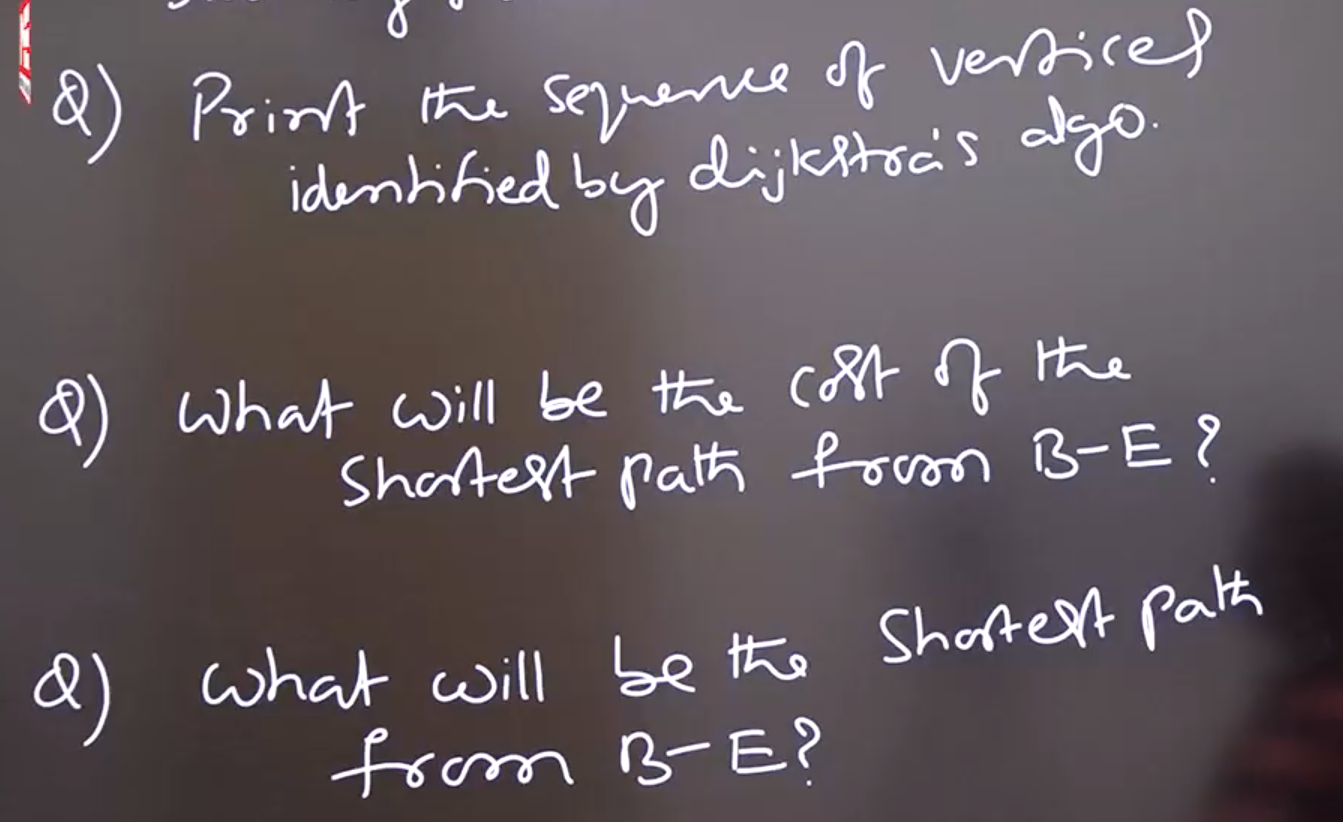 Q) Print the sequence of vertices
identified by dijkstra's algo.
Q) What will be the cost of the
Shortest path from B-E?
Q) What will be the Shortest path
from B-E?